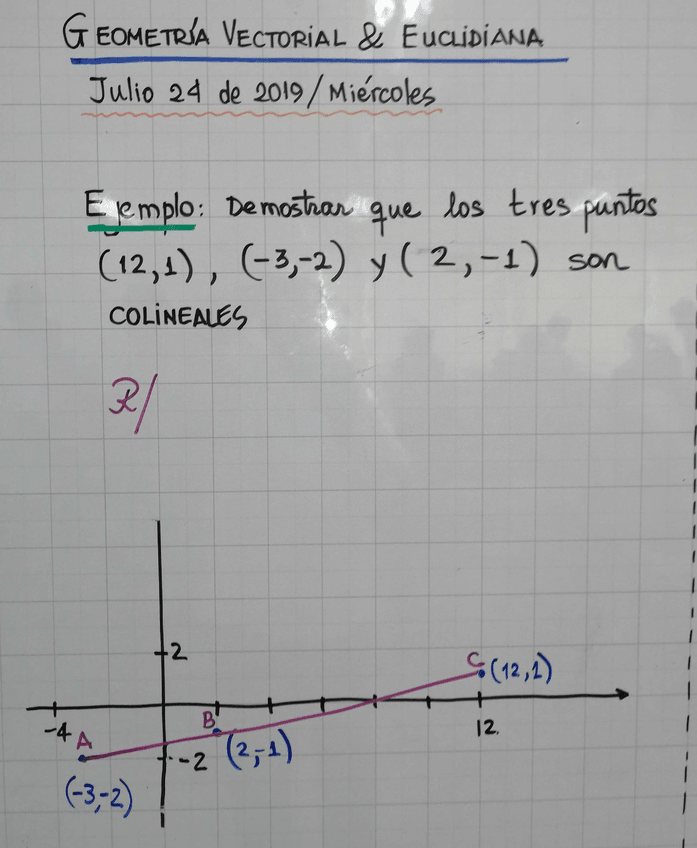 GEOMETRÍA VECTORIAL & EUCLIDIANA
Julio 24 de 2019/Miércoles
Ejemplo: Demostrar que los tres puntos
(12,1), (-3,-2) y (2,-1) son
COLINEALES
R/
2
C (12,1)
-4
A
B
12.
-2
(2,-1)
(-3,-2)